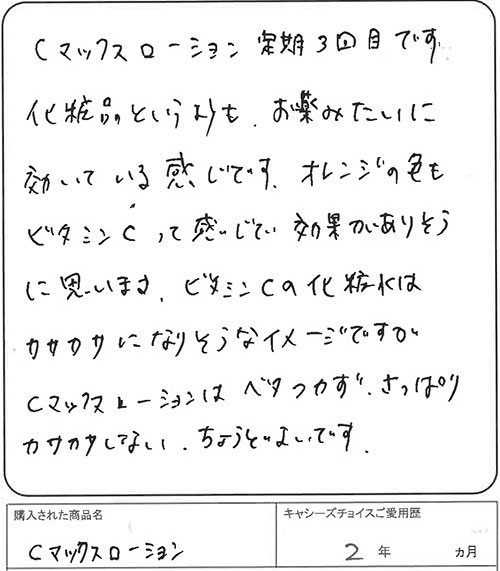 Cマックスローション 定期3回目です。
化粧品というよりも、お薬みたいに
効いている感じです。オレンジの色も
ビタミンCって感じで、効果がありそう
に思います。ビタミンCの化粧水は
カサカサになりそうなイメージですが
Cマックスローションは ベタつかず、さっぱり
カサカサしない、ちょうどよいです。
購入された商品名
キャシーズチョイスご愛用歴
Cマックスローション
2 年 ヵ月